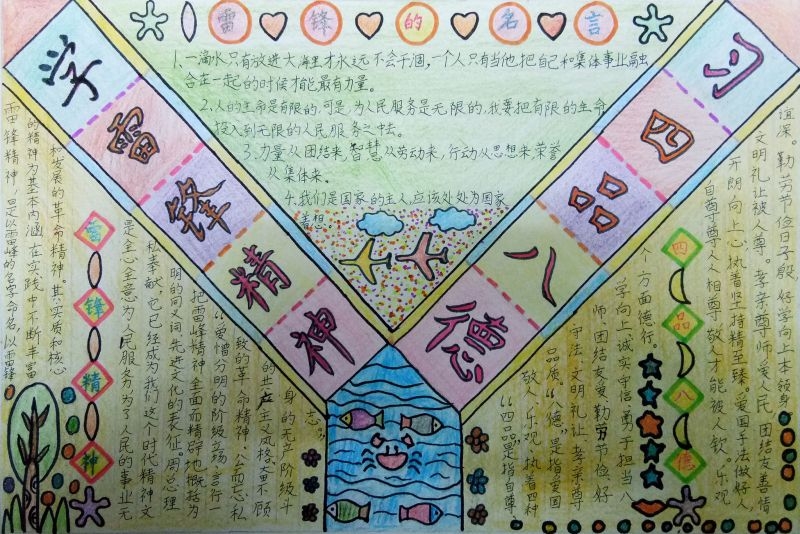 雷锋的名言
1、一滴水只有放进大海里才永远不会干涸，一个人只有当他把自己和集体事业融
合在一起的时候才能最有力量。
2、人的生命是有限的，可是，为人民服务是无限的，我要把有限的生命
投入到无限的人民服务之中去。
3、力量从团结来，智慧从劳动来，行动从思想来，荣誉
从集体来。
4、我们是国家的主人，应该处处为国家
着想。
学雷锋精神
习四品八德
雷锋精神，是以雷峰的名字命名，以雷锋
的精神为基本内涵 在实践中不断丰富
和发展的革命精神。其实质和核心
雷锋精神
是全心全意为人民服务，为了人民的事业无
私奉献。它已经成为我们这个时代精神文
明的同义词、先进文化的表征。周总理
把雷峰精神全面而精辟地概括为
“爱憎分明的阶级立场、言行一
致的革命精神、公而忘私
的共产主义风格、奋不顾
身的无产阶级斗
志。”
“四品”是指自尊
敬人、乐观、执着四种
品质。“德”是指爱国
守法、文明礼让、孝亲尊
师、团结友爱、勤劳节俭、好
学向上、诚实守信、勇于担当八
个方面德行。
四品八德
自尊尊人相尊敬人才能被人钦。乐观
开朗向上心，执着坚持精至臻。爱国守法做好人，
文明礼让被人尊。孝亲尊师爱人民，团结友善情
谊深。勤劳节俭日子殷，好学向上本领身